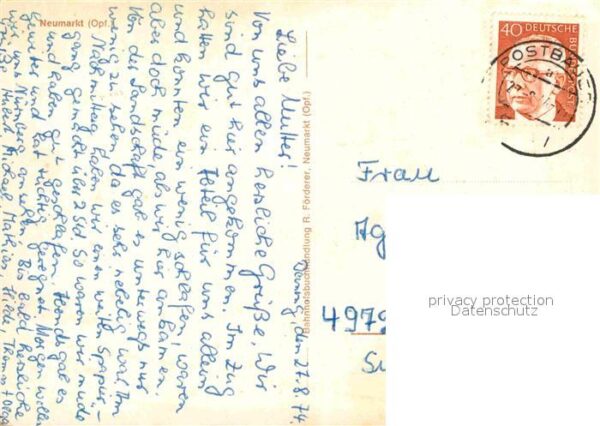 Neumarkt (Opf.)
Deining, den 27.8.74
Liebe Mutter!
Von uns allen herzliche Grüße. Wir
sind gut hier angekommen. Im Zug
hatten wir ein Abteil für uns allein
und konnten ein wenig schlafen, waren
aber doch müde als wir hier ankamen.
Von der Landschaft gab es unterwegs nur
wenig zu sehen, da es sehr nebelig war. Am
Nachmittag haben wir einen weiten Spazier-
gang gemacht über 2 Std. So waren wir müde
und haben gut geschlafen. Abends gab es
Gewitter und hat tüchtig geregnet. Morgen wollen
wir uns Nürnberg ansehen. Bis bald herzliche
Grüße Hubert, Michael, Mathias, Hilde, Thomas + Olga
Bahnhofsbuchhandlung R. Förderer, Neumarkt (Opf.)
40
DEUTSCHE
BUNDESPOST
POSTBAUER
Frau
Ag
4979
privacy protection
Datenschutz